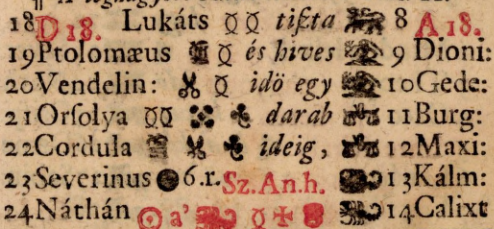 18 D 18. Lukáts tißta 8 A 18.
19 Ptolomæus és hives 9 Dioni:
20 Vendelin: idö egy 10 Gede:
21 Orſolya darab 11 Burg:
22 Cordula ideig, 12 Maxi:
23 Severinus 6.r. Sz. An. h. 13 Kálm:
24 Náthán a' 14 Calixt